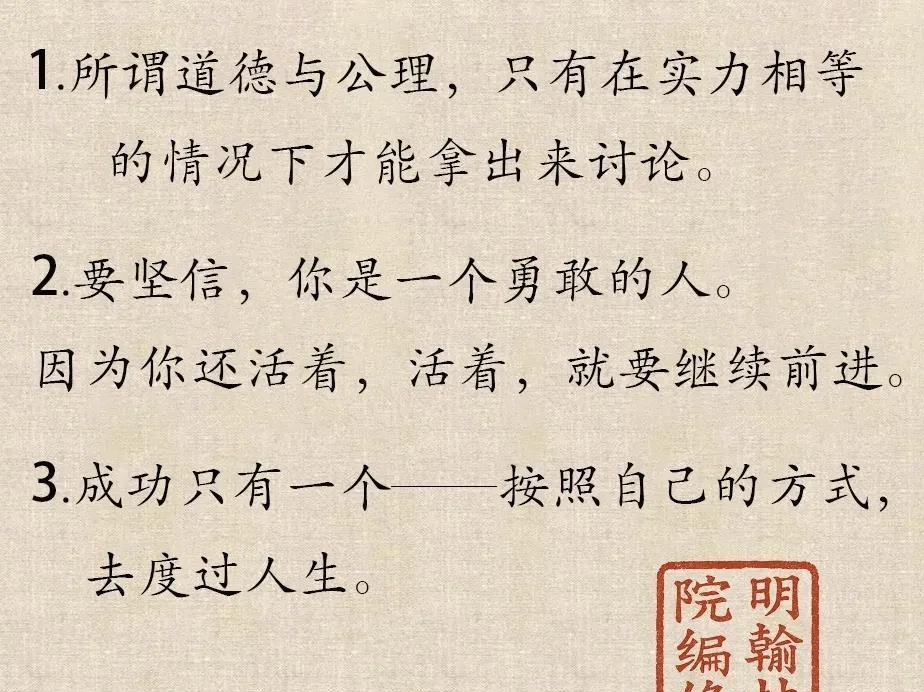 1.所谓道德与公理，只有在实力相等
的情况下才能拿出来讨论。
2.要坚信，你是一个勇敢的人。
因为你还活着，活着，就要继续前进。
3.成功只有一个——按照自己的方式，
去度过人生。
明翰
院编